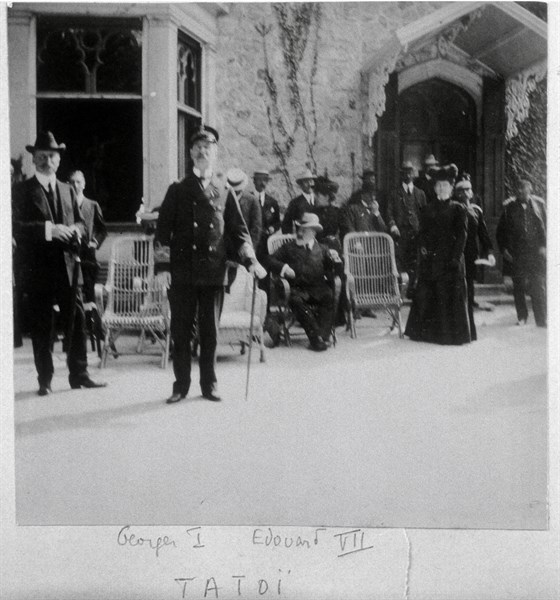 Georges I Edouard VII
TATOÏ